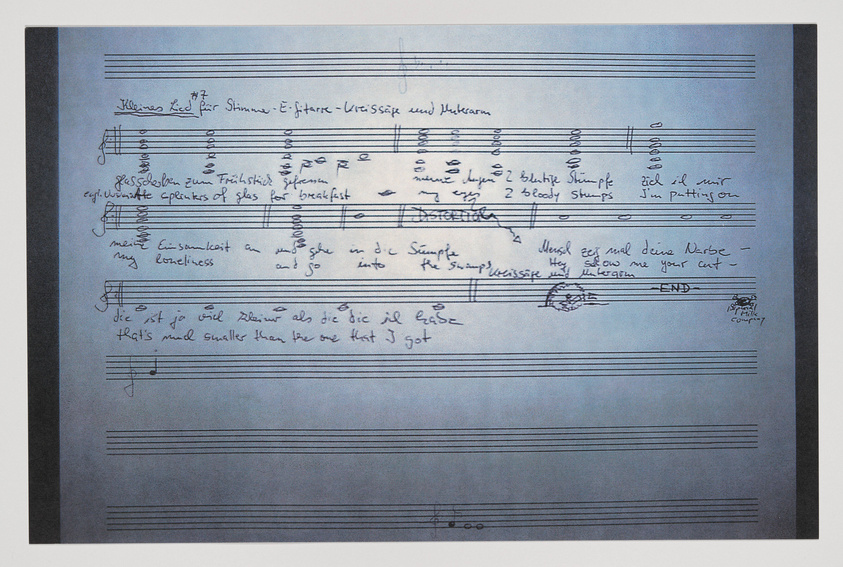 #7
Kleines Lied für Stimme - E-Gitarre - Kreissäge und Unterarm
glasscherben zum Frühstück gefressen meine Augen 2 blutige Stümpfe zieh ich mir
splinters of glas for breakfast my eyes 2 bloody stumps I'm putting on
DISTORTION
meine Einsamkeit an und gehe in die Sümpfe Mensch zeig mal deine Narbe -
my loneliness and go into the swamps Hey show me your cut -
Kreissäge und Unterarm
- END -
die ist ja viel kleiner als die die ich habe
that's much smaller than the one that I got
Milk
Company